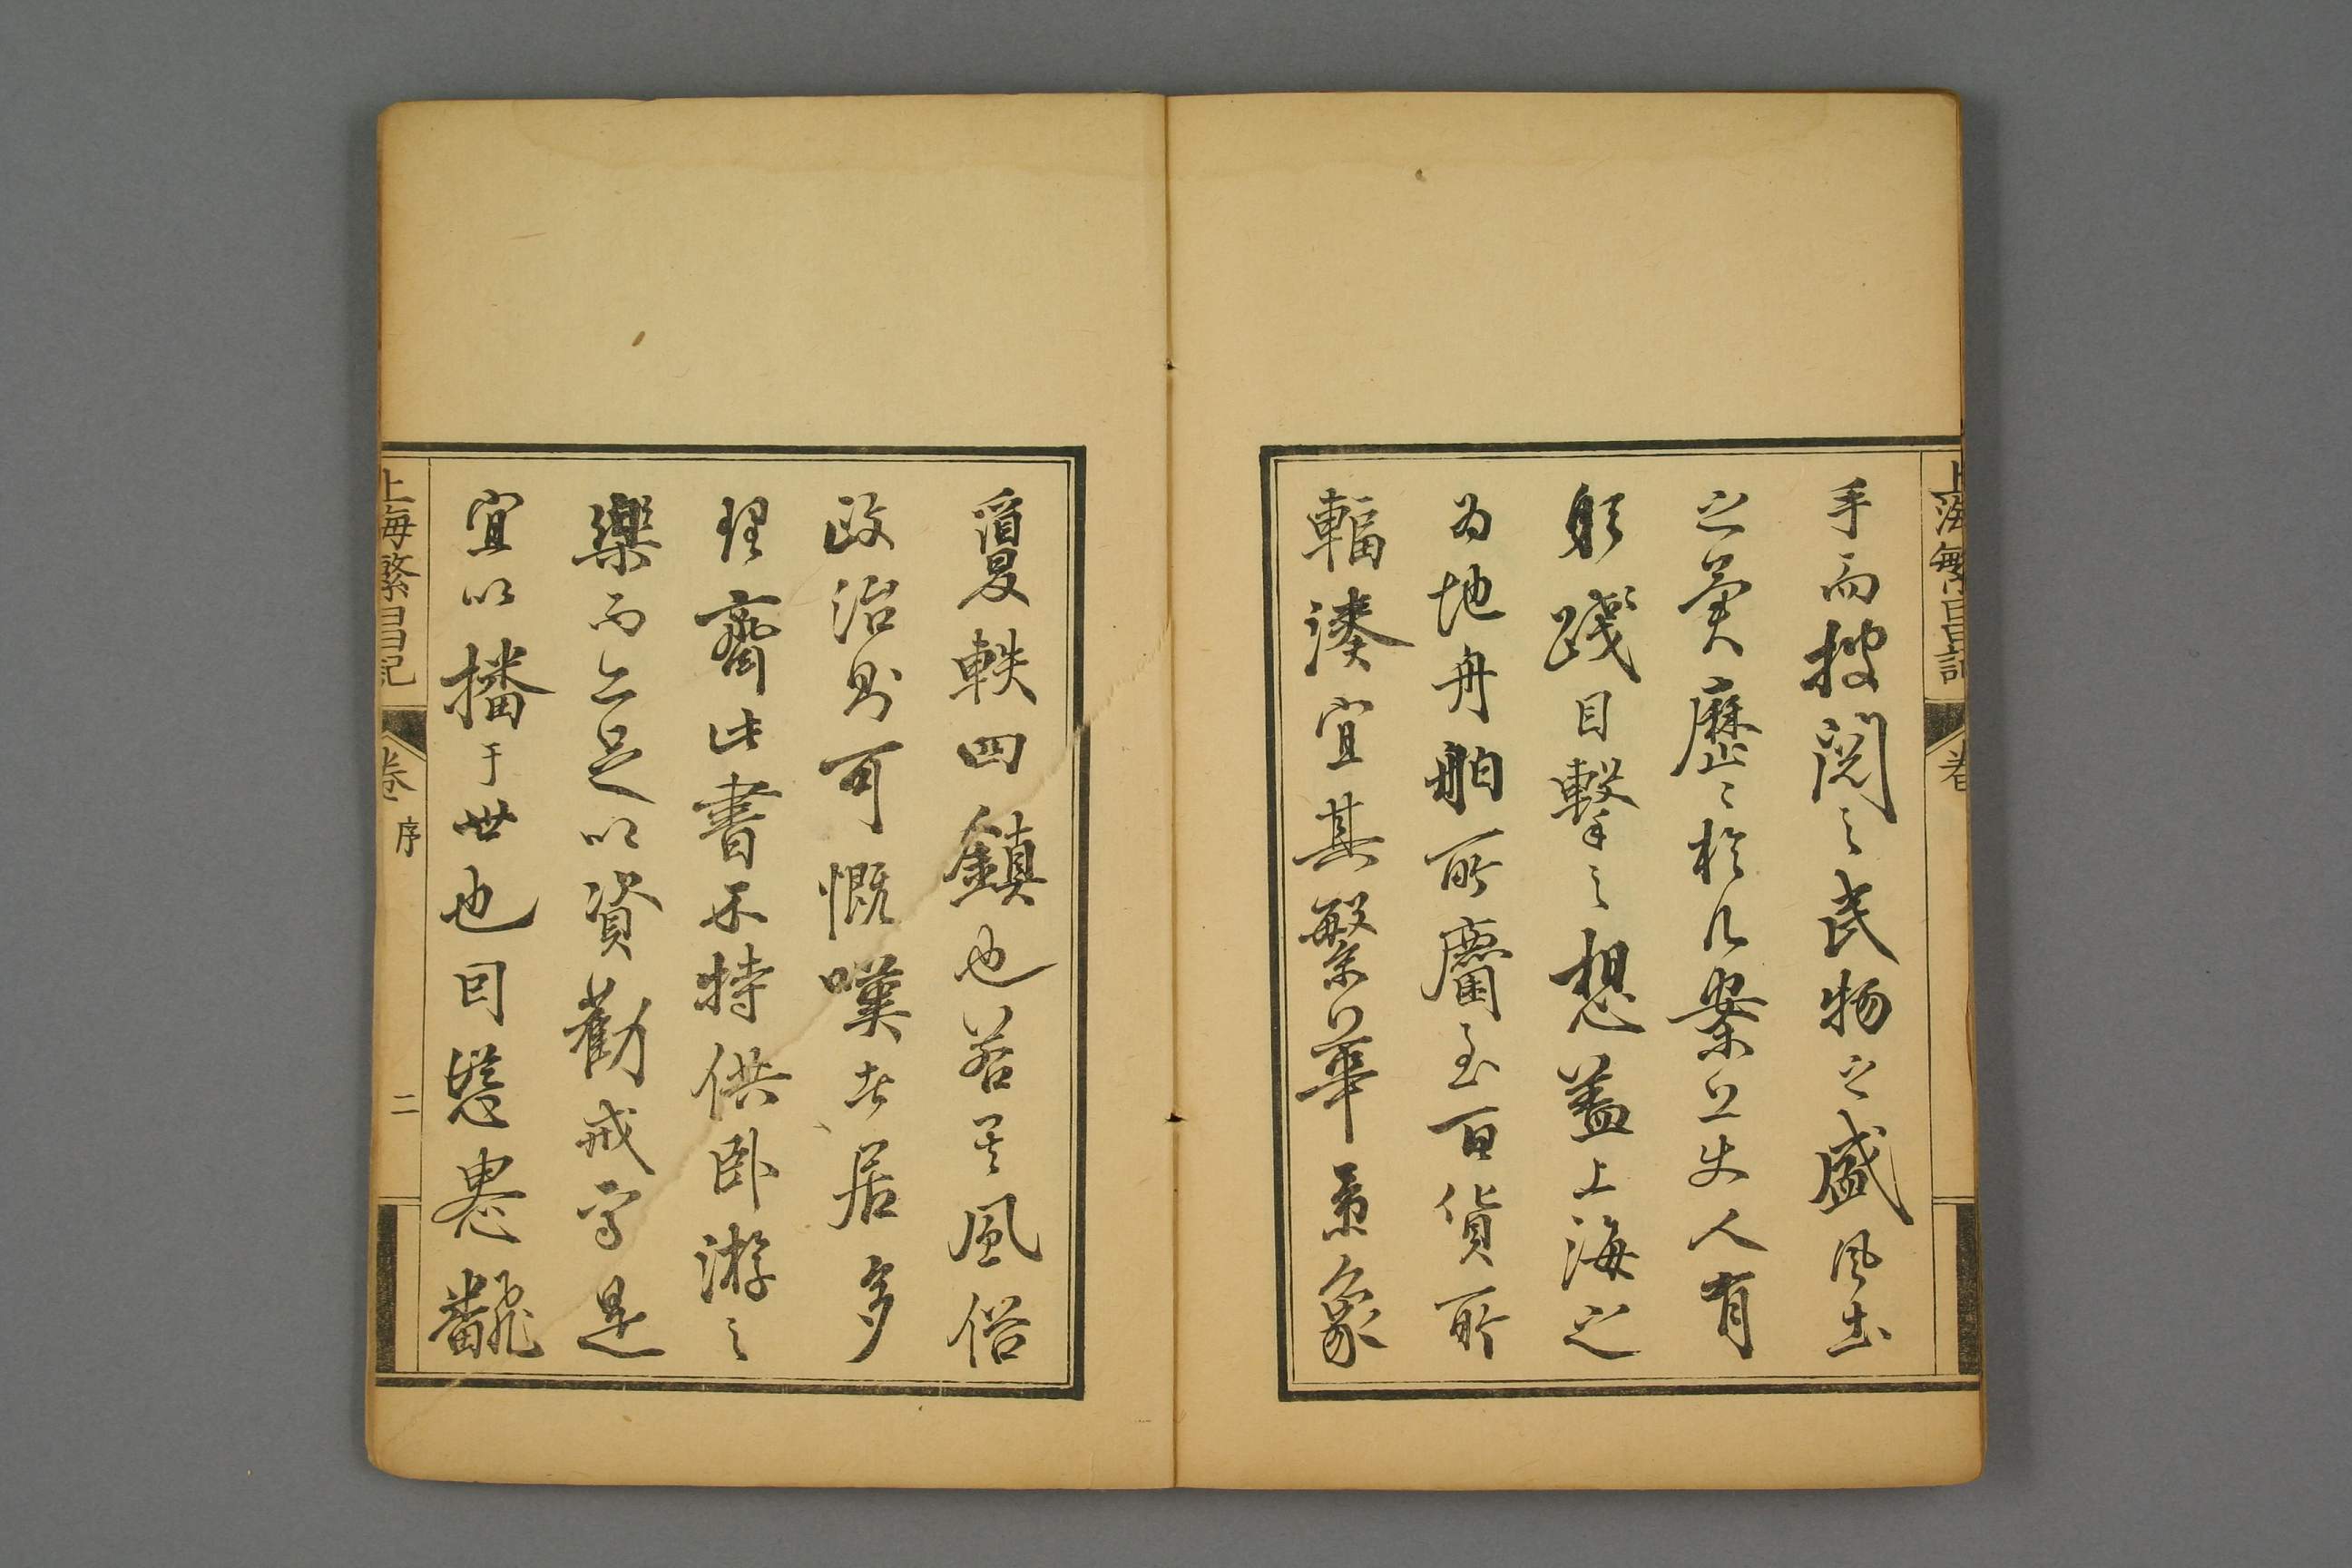 上海繁昌記 卷
手而披閱之民物之盛風土
之美歷々於几案上使人有
躬踐目擊之想蓋上海之
為地舟舶所麕至百貨所
輻湊宜其繁華景象
敻軼四鎮也若其風俗
政治則可慨嘆者居多
理齋此書不特供臥游之
樂而亦足以資勸戒寧是
宜以播于世也因慫恿翻
上海繁昌記 卷 序 二